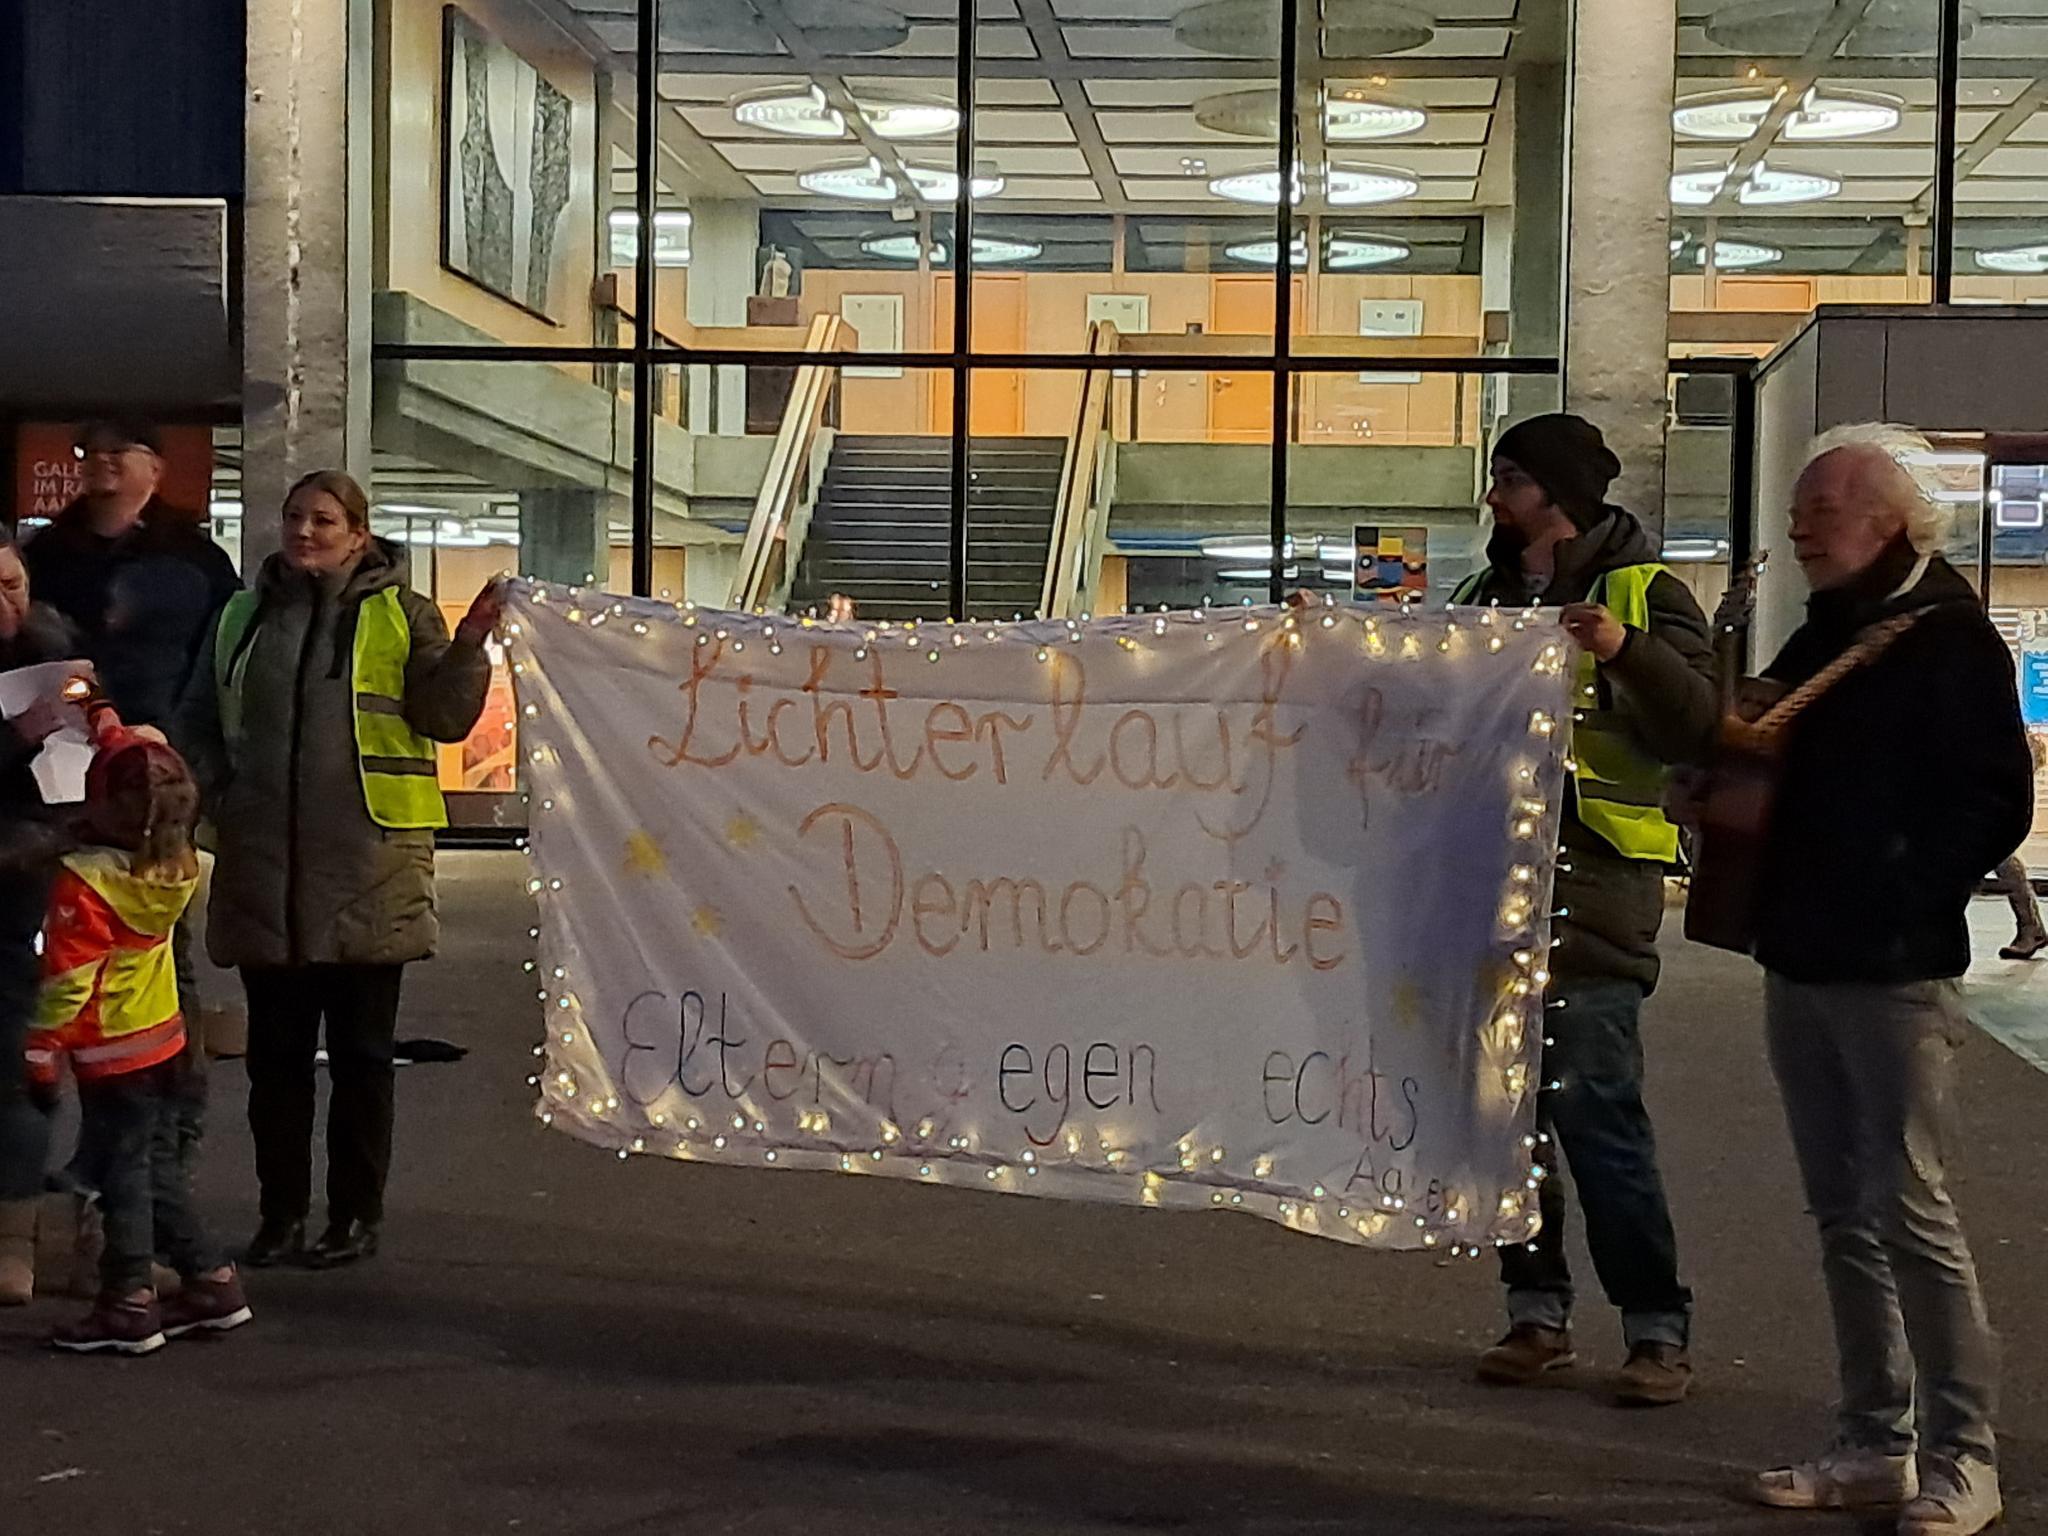 GALE
IM RA
AA
Lichterlauf für
Demokratie
Eltern gegen echts